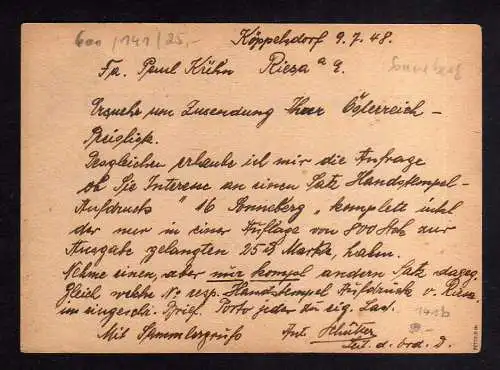 600/141/25,-
Köppelsdorf 9.7.48.
Fa. Paul Kühn Riesa a. E.
Sonneberg
Ersuche um Zusendung Ihrer Österreich-
Preisliste.
Desgleichen erlaube ich mir die Anfrage
ob Sie Interesse an einen Satz Handstempel-
Aufdruck "16 Sonneberg" komplett inkl
der nur in einer Auflage von 800 Stck zur
Ausgabe gelangten 25 Marke, habn.
Nehme einen, aber nur kompl andern Satz dageg.
Gleich welche No resp. Handstempel Aufdruck v. Riesa
um eingeschr. Brief. Porto jeder zu eig. Last.
1416
Mit Sammlergruss Ant. Schütter